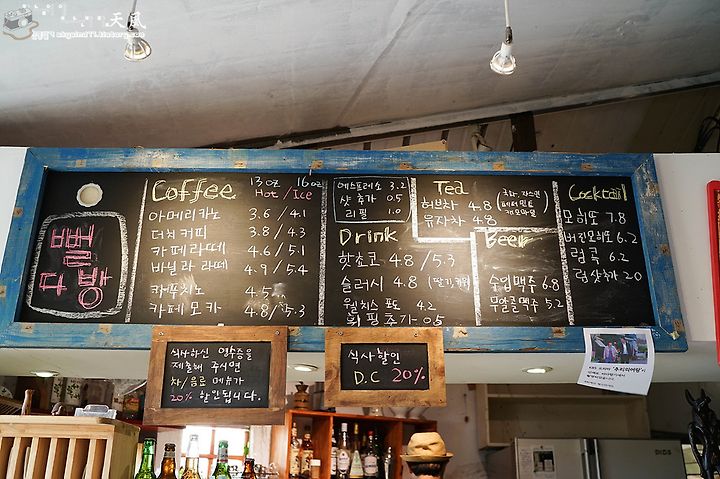 天風
뻘
다방
Coffee 13oz 16oz
Hot / Ice
아메리카노 3.6 / 4.1
더치커피 3.8 / 4.3
카페라떼 4.6 / 5.1
바닐라 라떼 4.9 / 5.4
카푸치노 4.5
카페모카 4.8 / 5.3
에스프레소 3.2
샷 추가 0.5
리필 1.0
Drink
핫쵸코 4.8 / 5.3
슬러시 4.8
웰치스 포도 4.2
휘핑추가 0.5
Tea
허브차 4.8
유자차 4.8
페퍼민트
캐모마일
Beer
수입맥주 6.8
무알콜맥주 5.2
Cocktail
모히또 7.8
버진모히또 6.2
럼콕 6.2
럼샷추가 2.0
식사하신 영수증을
제출해 주시면
차/음료 메뉴가
20% 할인됩니다.
식사할인
D.C 20%